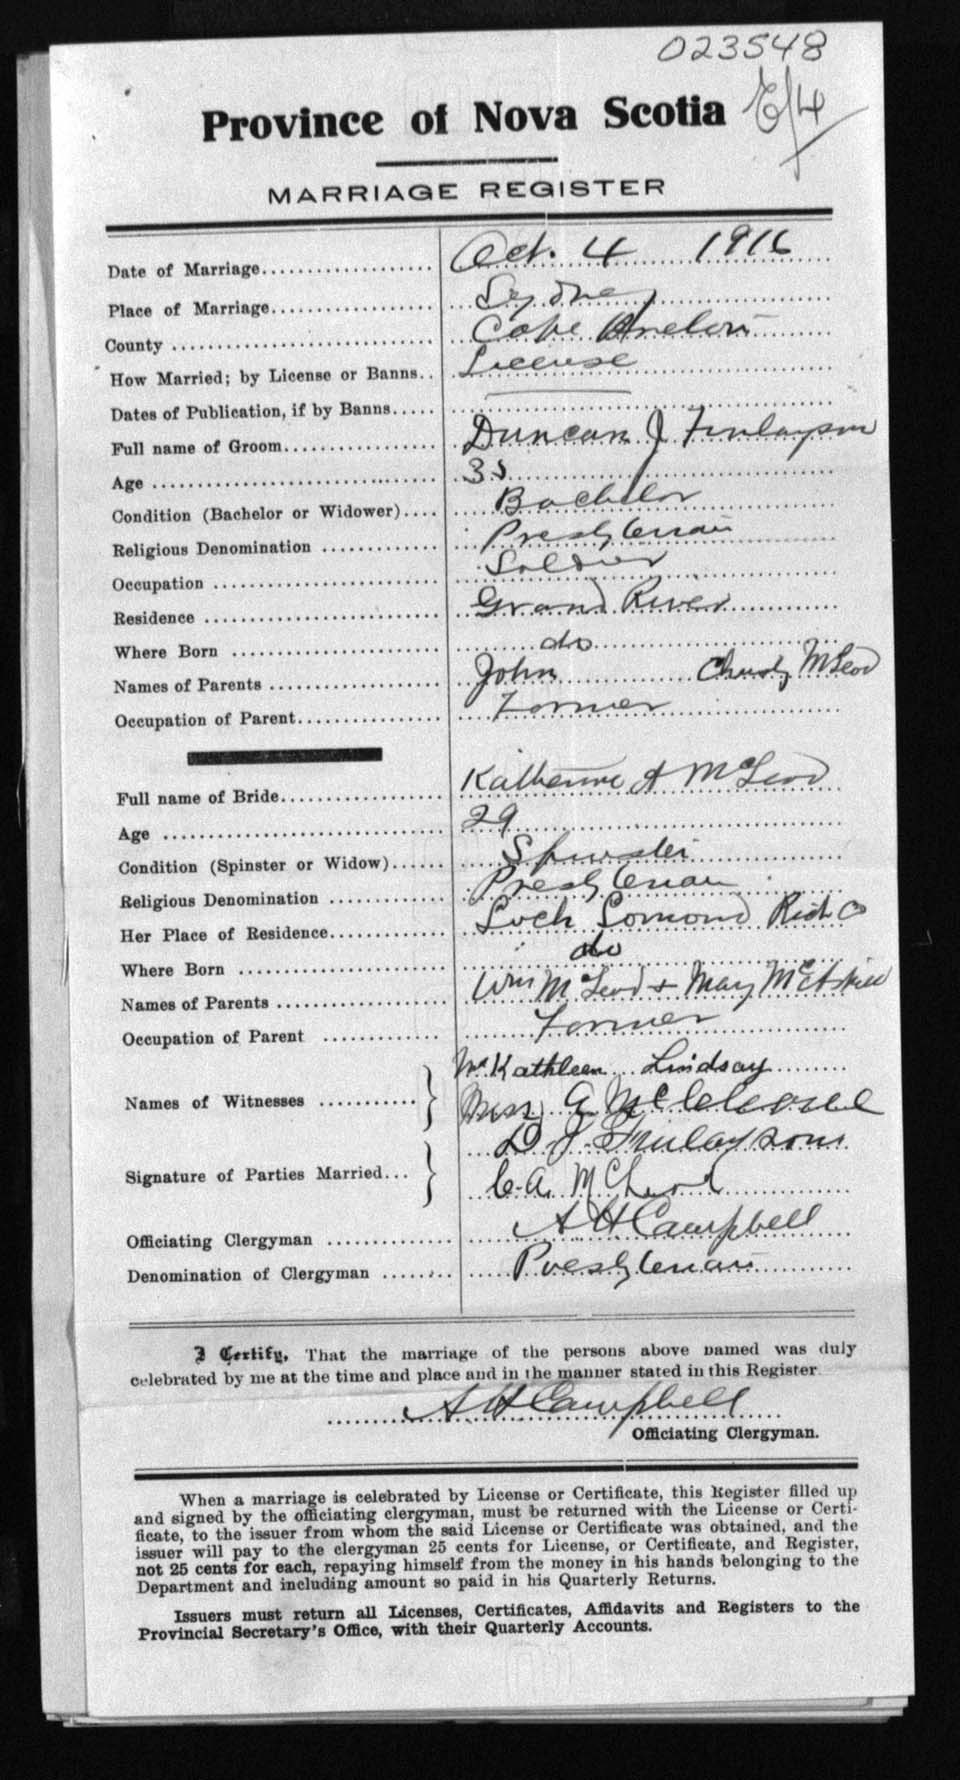 023548
Province of Nova Scotia
MARRIAGE REGISTER
Date of Marriage Oct. 4 1916
Place of Marriage Sydney
County Cape Breton
How Married; by License or Banns License
Dates of Publication, if by Banns
Full name of Groom Duncan J Finlayson
Age 35
Condition (Bachelor or Widower) Bachelor
Religious Denomination Presbyterian
Occupation Soldier
Residence Grand River
Where Born do
Names of Parents John Christy McLeod
Occupation of Parent Farmer
Full name of Bride Katherine A McLeod
Age 29
Condition (Spinster or Widow) Spinster
Religious Denomination Presbyterian
Her Place of Residence Loch Lomond Rich Co
Where Born do
Names of Parents Wm McLeod + Mary McAskill
Occupation of Parent Farmer
Kathleen Lindsay
Names of Witnesses
A
D J Finlayson
Signature of Parties Married
C. A. McLeod
Officiating Clergyman A H Campbell
Denomination of Clergyman Presbyterian
I Certify, That the marriage of the persons above named was duly
celebrated by me at the time and place and in the manner stated in this Register
A H Campbell
Officiating Clergyman.
When a marriage is celebrated by License or Certificate, this Register filled up
and signed by the officiating clergyman, must be returned with the License or Certi-
ficate, to the issuer from whom the said License or Certificate was obtained, and the
issuer will pay to the clergyman 25 cents for License, or Certificate, and Register,
not 25 cents for each, repaying himself from the money in his hands belonging to the
Department and including amount so paid in his Quarterly Returns.
Issuers must return all Licenses, Certificates, Affidavits and Registers to the
Provincial Secretary's Office, with their Quarterly Accounts.